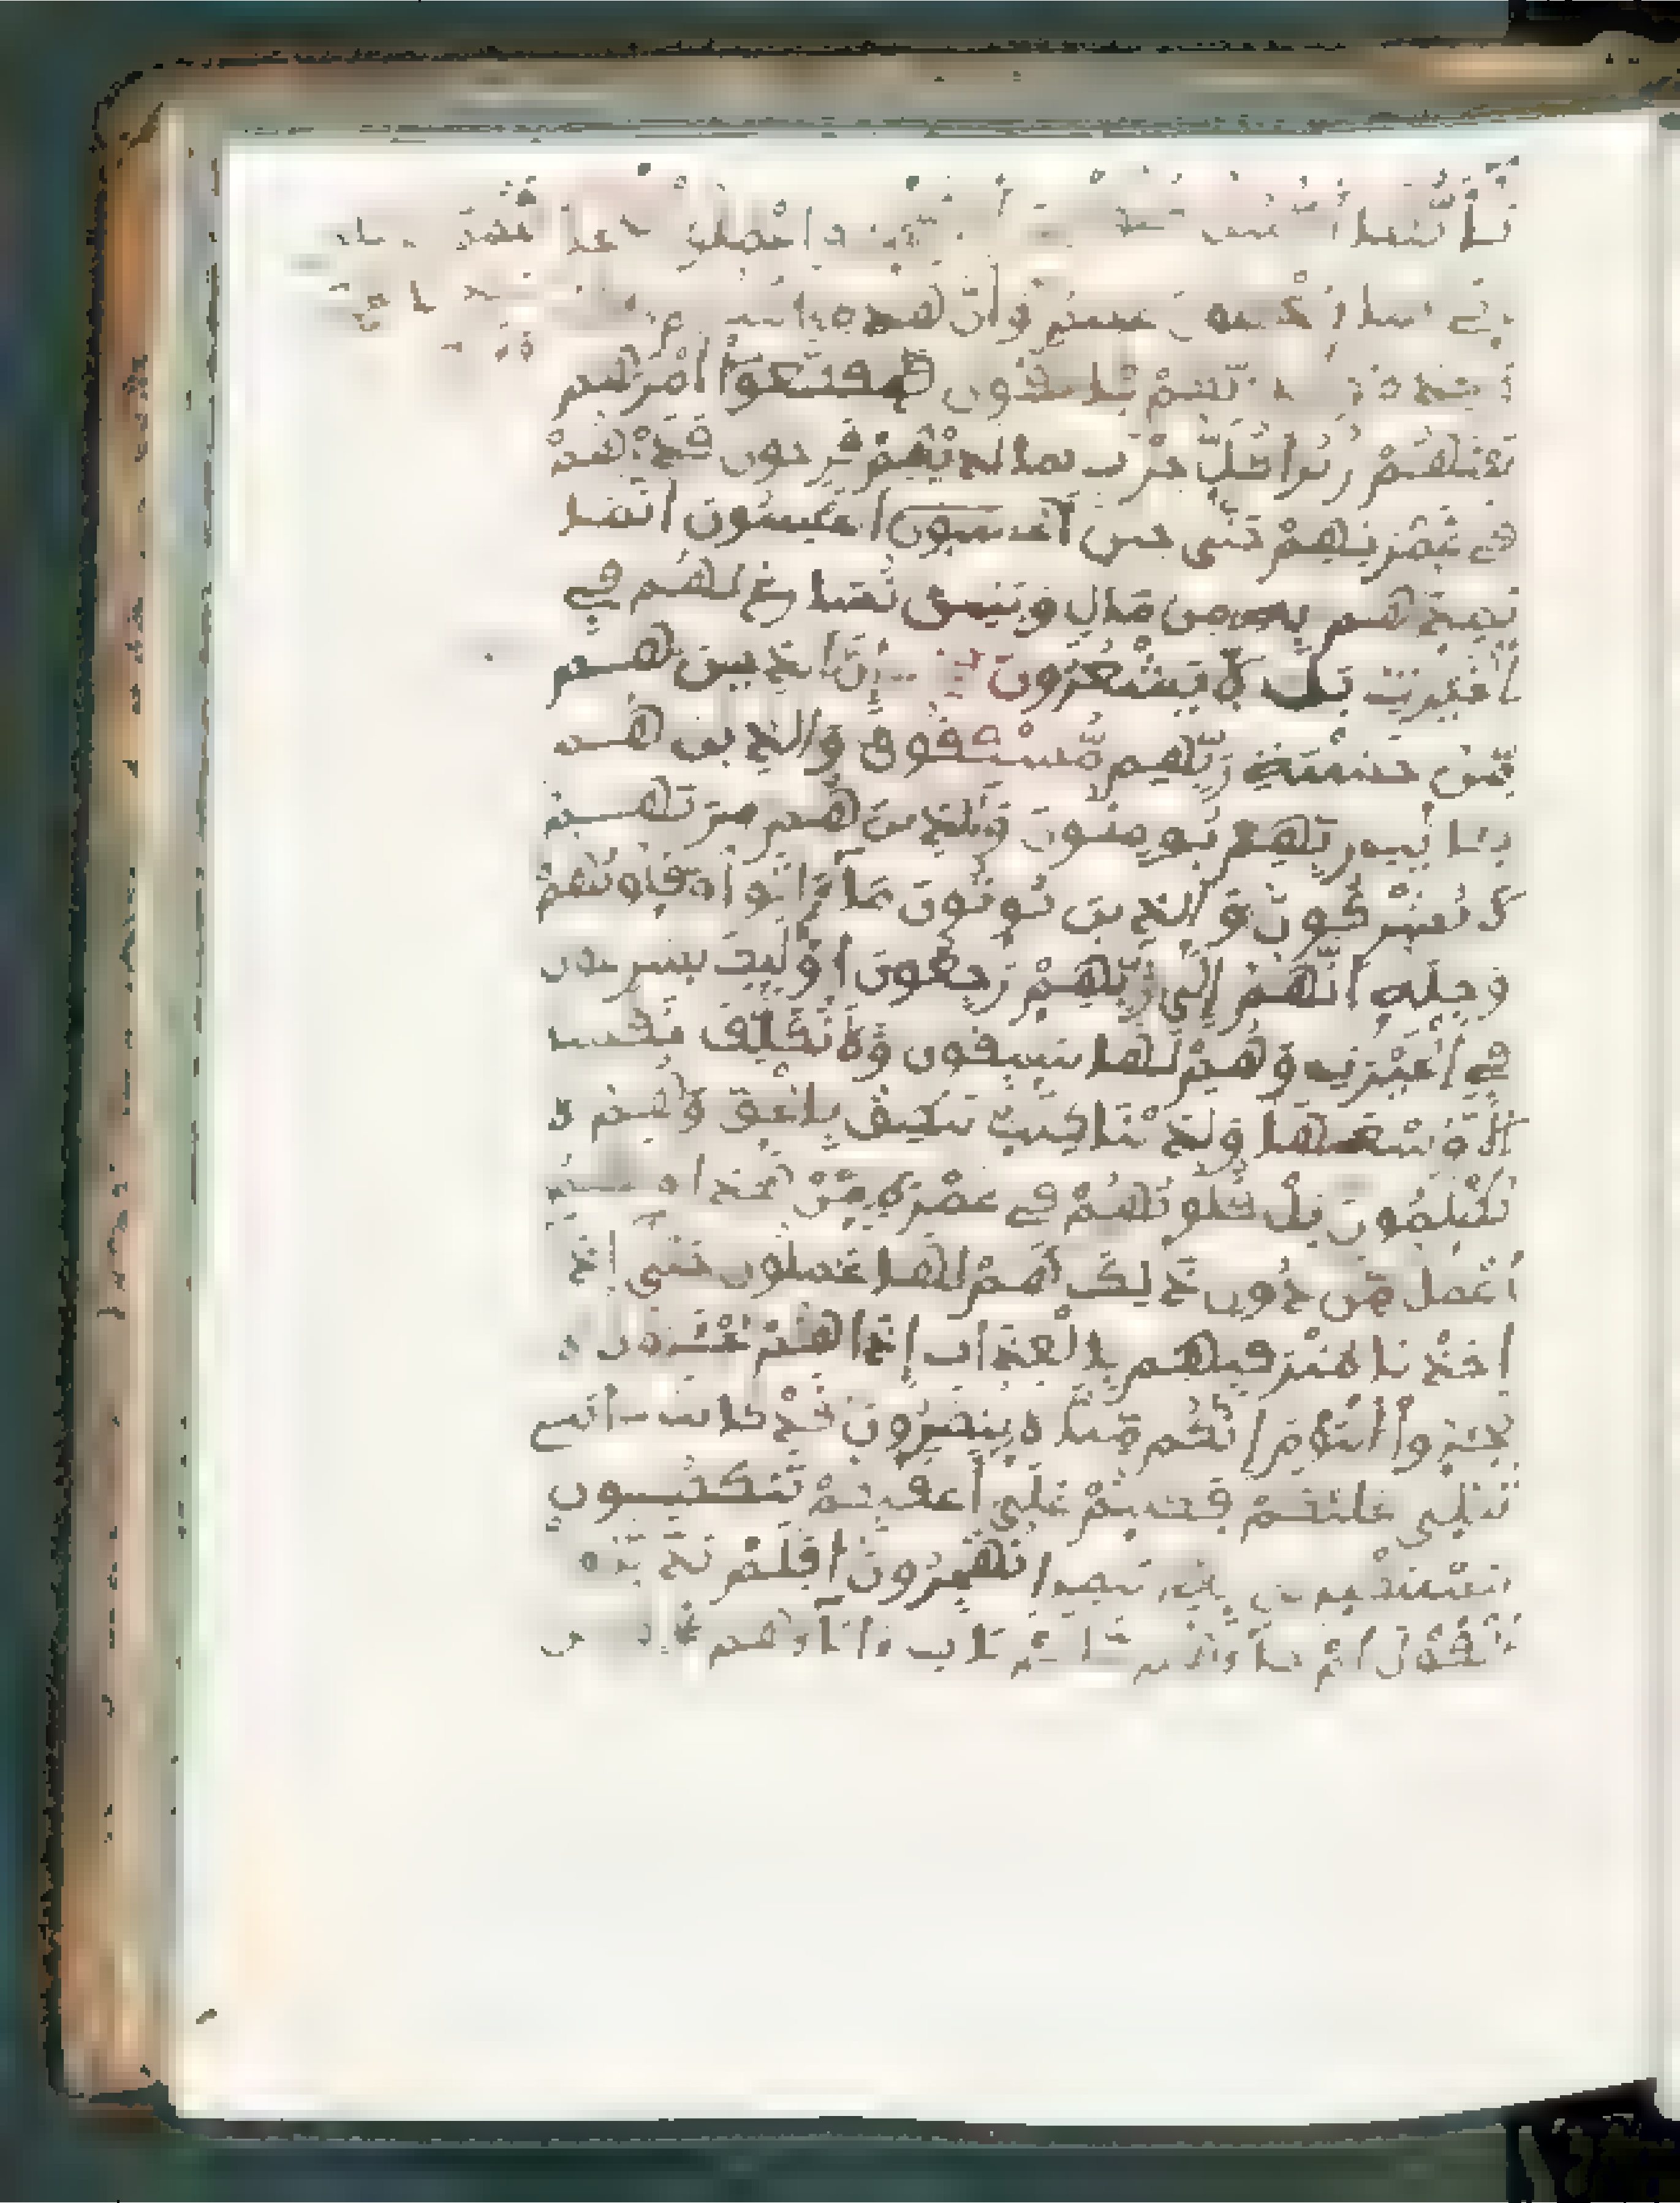 واعملوا
وإن هذه
فاتقون فتقطعوا أمرهم
بينهم زبرا كل حزب بما لديهم فرحون فذرهم
في غمرتهم حتى حين أيحسبون أنما
نمدهم به من مال وبنين نسارع لهم في
الخيرت بل لا يشعرون إن الذين هم
من خشية ربهم مشفقون والذين هم
بئايت ربهم يومنون والذين هم بربهم
لا يشركون والذين يوتون ما ءاتوا وقلوبهم
وجلة أنهم إلى ربهم رجعون أوليك يسرعون
في الخيرت وهم لها سبقون ولا نكلف نفسا
إلا وسعها ولدينا كتب ينطق بالحق وهم لا
يظلمون بل قلوبهم في غمرة من هذا ولهم
أعمل من دون ذلك هم لها عملون حتى إذا
أخذنا مترفيهم بالعذاب إذا هم يجئرون لا
تجئروا اليوم إنكم منا لا تنصرون قد كانت ءايتي
تتلى عليكم فكنتم على أعقبكم تنكصون
مستكبرين به سمرا تهجرون أفلم يدبروا
القول أم ءاباءهم